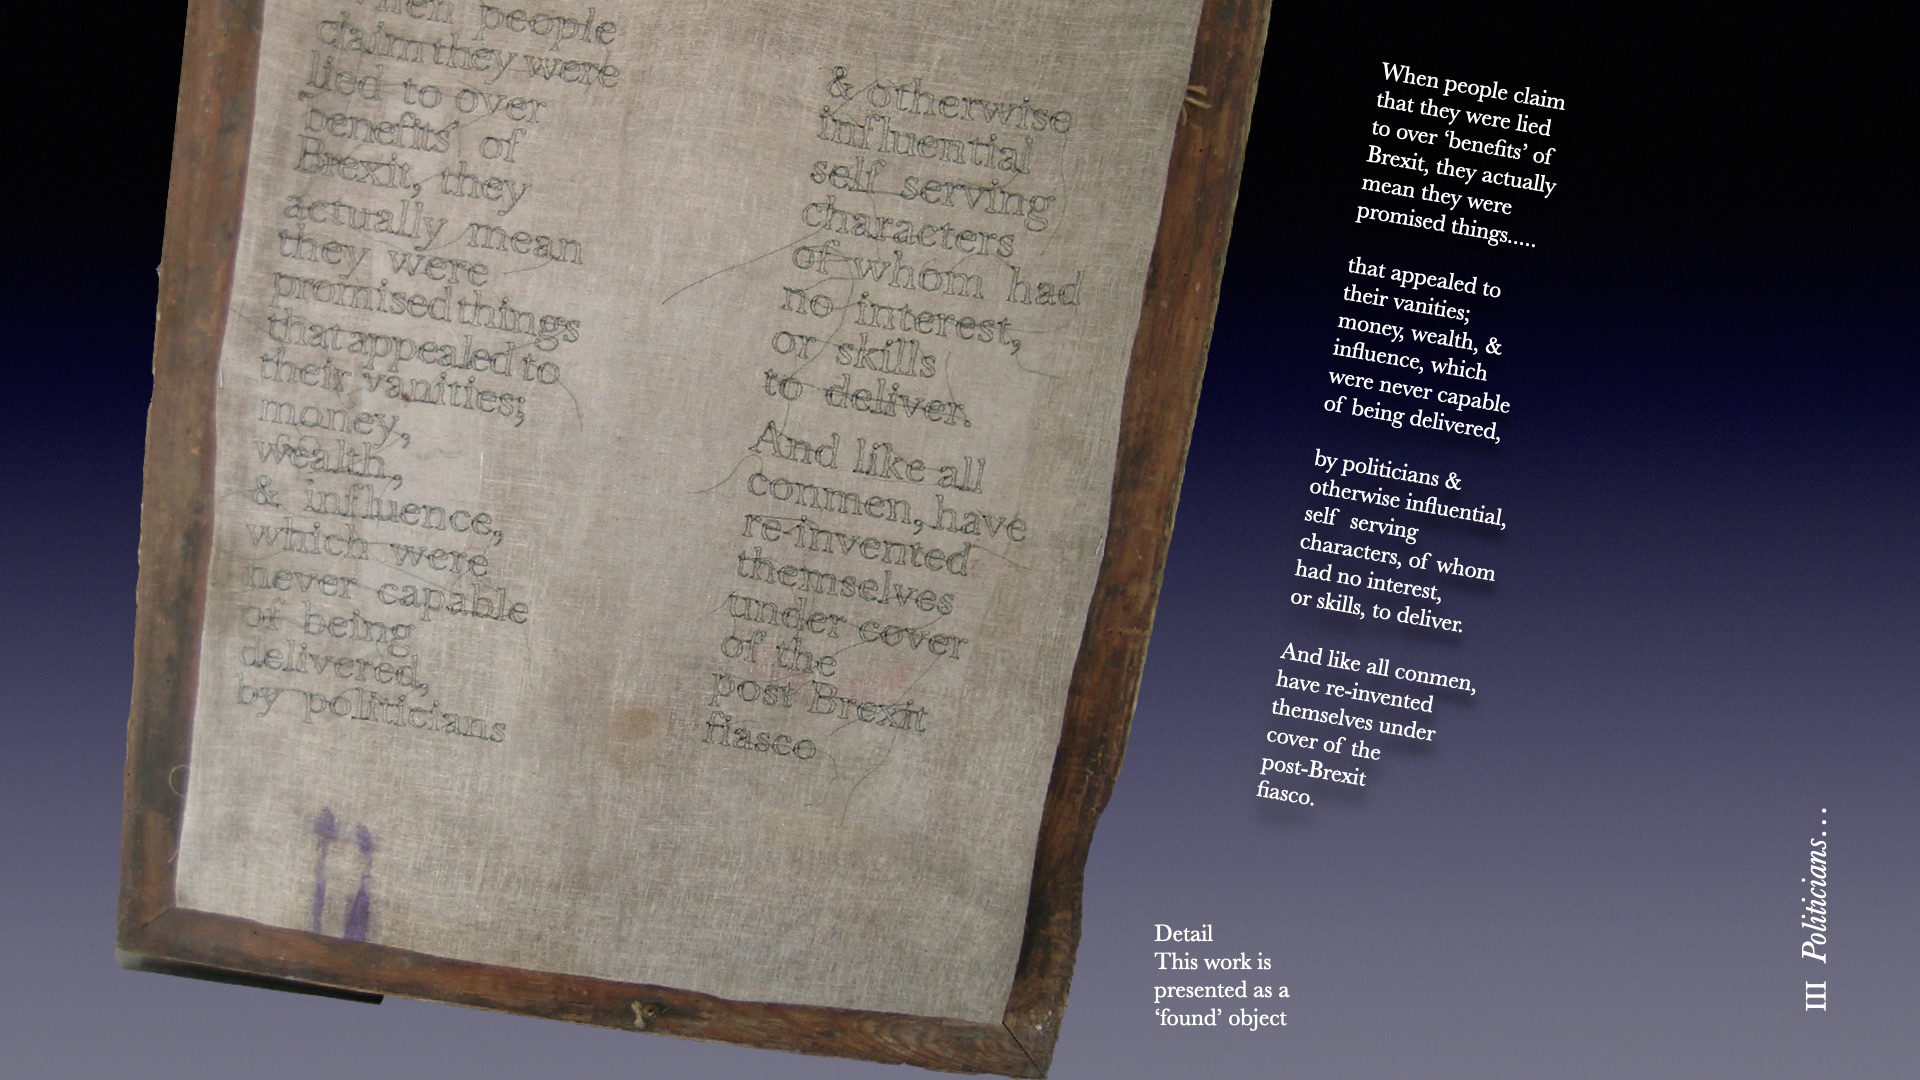 When people
claim they were
lied to over
'benefits' of
Brexit, they
actually mean
they were
promised things
that appealed to
their vanities;
money,
wealth,
& influence,
which were
never capable
of being
delivered,
by politicians
& otherwise
influential
self serving
characters
of whom had
no interest,
or skills
to deliver.
And like all
conmen, have
re-invented
themselves
under cover
of the
post Brexit
fiasco
When people claim
that they were lied
to over ‘benefits’ of
Brexit, they actually
mean they were
promised things.....
that appealed to
their vanities;
money, wealth, &
influence, which
were never capable
of being delivered,
by politicians &
otherwise influential,
self serving
characters, of whom
had no interest,
or skills, to deliver.
And like all conmen,
have re-invented
themselves under
cover of the
post-Brexit
fiasco.
Detail
This work is
presented as a
‘found’ object
III Politicians...